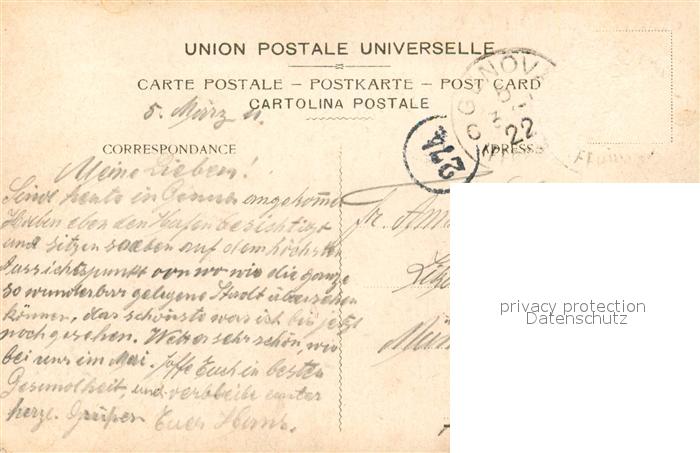 UNION POSTALE UNIVERSELLE
CARTE POSTALE – POSTKARTE – POST CARD
CARTOLINA POSTALE
5. März 11.
GENOVA
22
274
CORRESPONDANCE
ADRESSE
Meine Lieben!
Sind heute in Genua angekommen
Haben eben den Hafen besichtigt
und sitzen soeben auf dem höchsten
Aussichtspunkt von wo wir die ganze
so wunderbar gelegene Stadt übersehen
können, das schönste was ich bis jetzt
noch gesehen. Wetter sehr schön, wie
bei uns im Mai. Hoffe Euch in besten
Gesundheit, und verbleibe unter
herzl. Grüßen Euer Hans.
Fr.
privacy protection
Datenschutz